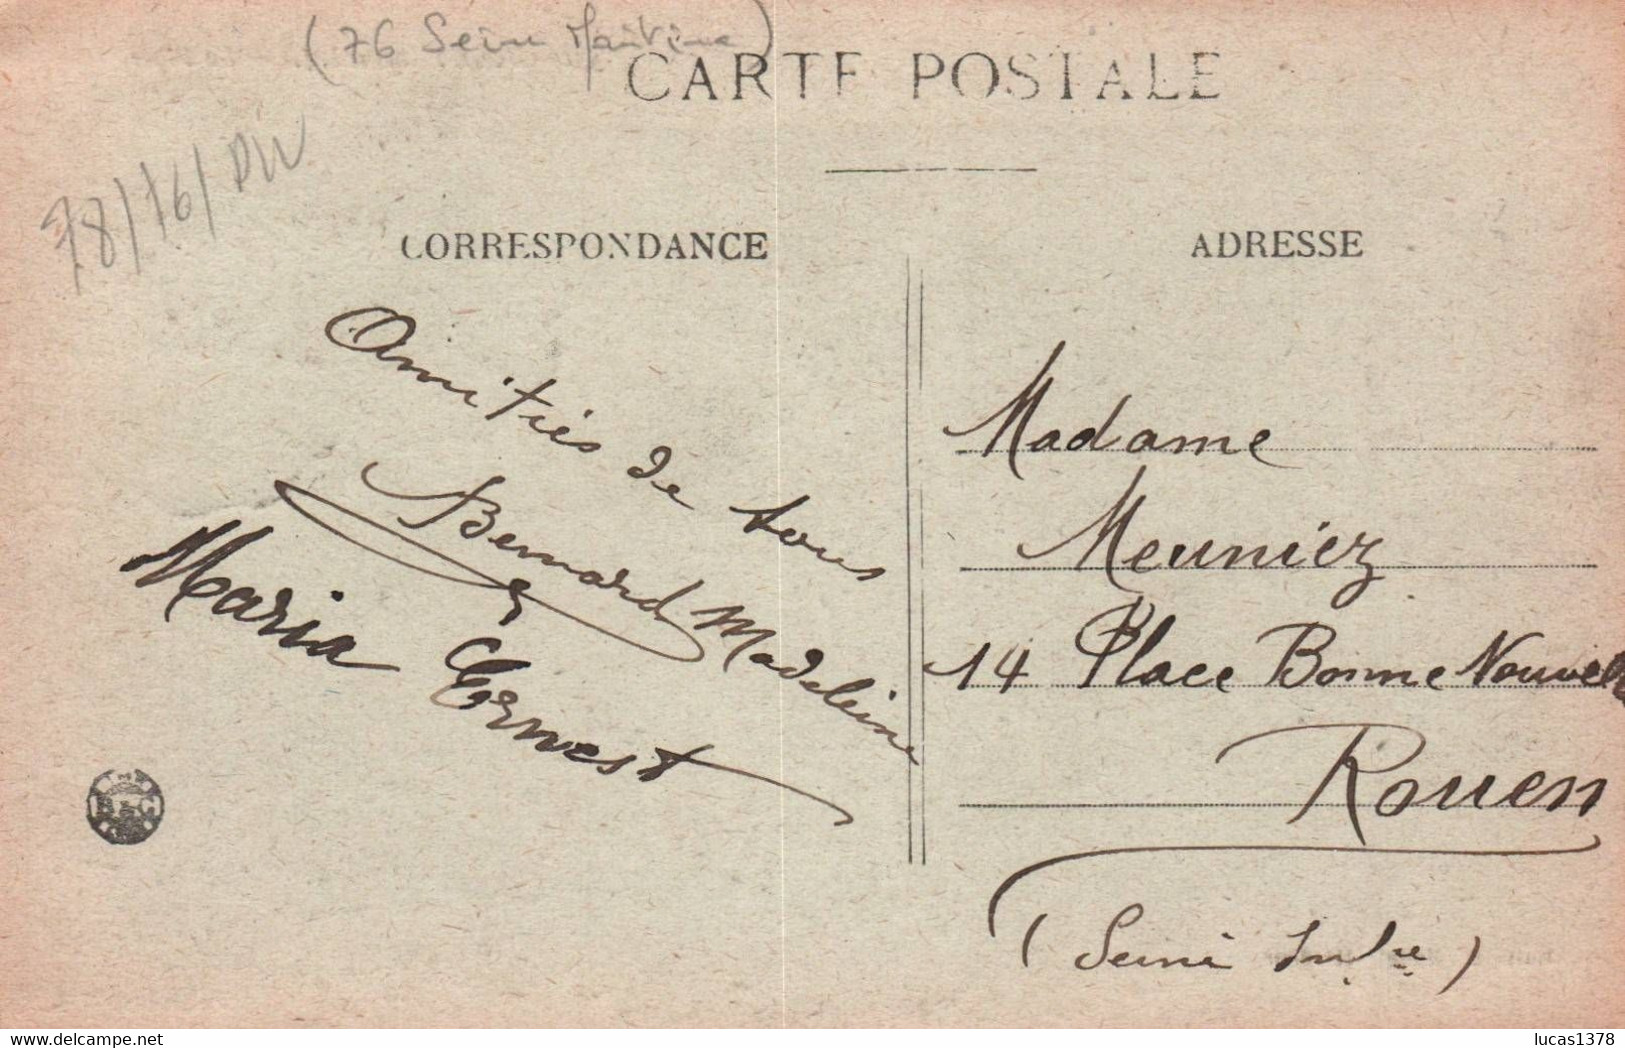 (76 Seine Maritime)
CARTE POSTALE
78/76/
CORRESPONDANCE
Amitiés de tous
Bernard Madeleine
Maria Ernest
ADRESSE
Madame
Meuniez
14 Place Bonne Nouvelle
Rouen
(Seine Infre)
delcampe.net
lucas1378